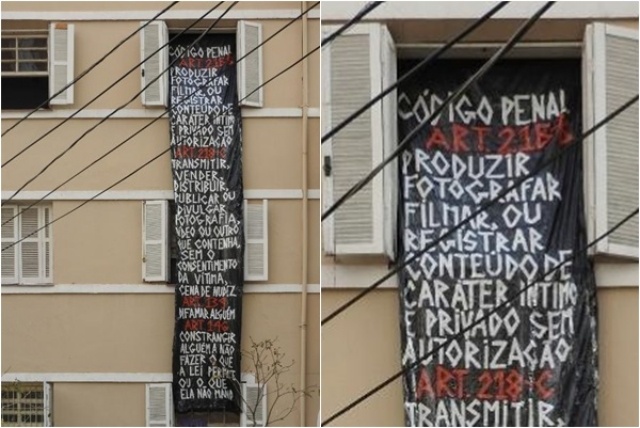 CÓDIGO PENAL
ART. 216
PRODUZIR
FOTOGRAFAR
FILMAR, OU
REGISTRAR
CONTEÚDO DE
CARATER INTIMO
E PRIVADO SEM
AUTORIZAÇÃO
ART. 218-C
TRANSMITIR,
VENDER,
DISTRIBUIR,
PUBLICAR OU
DIVULGAR
FOTOGRAFIA,
VIDEO OU OUTRO
QUE CONTENHA,
SEM O
CONSENTIMENTO
DA VÍTIMA,
CENA DE NUDEZ
ART. 139
DIFAMAR ALGUÉM
ART 146
CONSTRANGIR
ALGUÉM A NÃO
FAZER O QUE
A LEI PERMITE
OU O QUE
ELA NÃO MANDA
CÓDIGO PENAL
PRODUZIR
FOTOGRAFAR
FILMAR, OU
REGISTRAR
CONTEÚDO DE
CARATER INTIMO
E PRIVADO SEM
AUTORIZAÇÃO
ART. 218-C
TRANSMITIR,